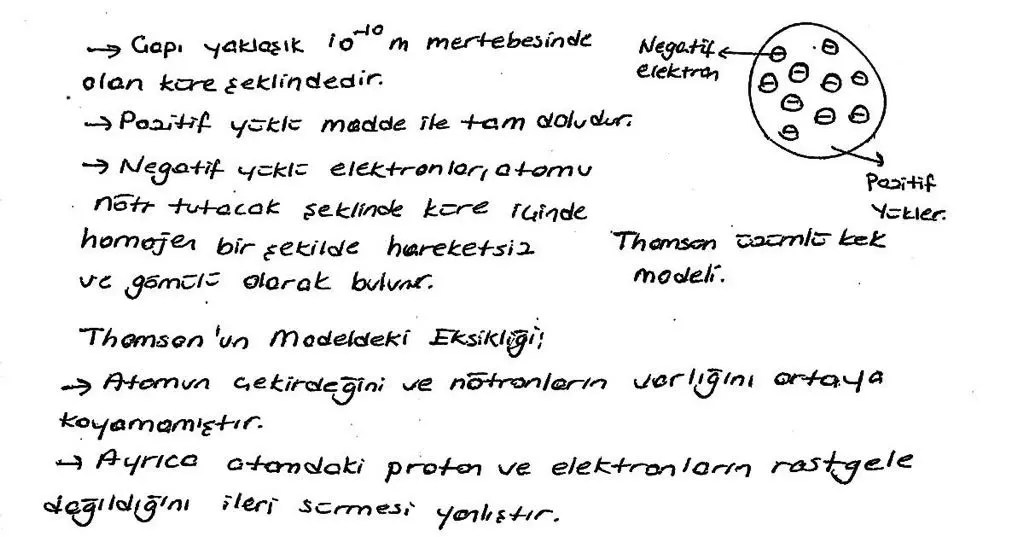 → Çapı yaklaşık 10⁻¹⁰ m mertebesinde
olan küre şeklindedir.
→ Pozitif yüklü madde ile tam doludur.
→ Negatif yüklü elektronlar, atomu
nötr tutacak şeklinde küre içinde
homojen bir şekilde hareketsiz
ve gömülü olarak bulunur.
Negatif
elektron
Pozitif
Yükler.
Thomson üzümlü kek
modeli.
Thomson'un Modeldeki Eksikliği;
→ Atomun çekirdeğini ve nötronların varlığını ortaya
koyamamıştır.
→ Ayrıca atomdaki proton ve elektronların rastgele
dağıldığını ileri sürmesi yanlıştır.